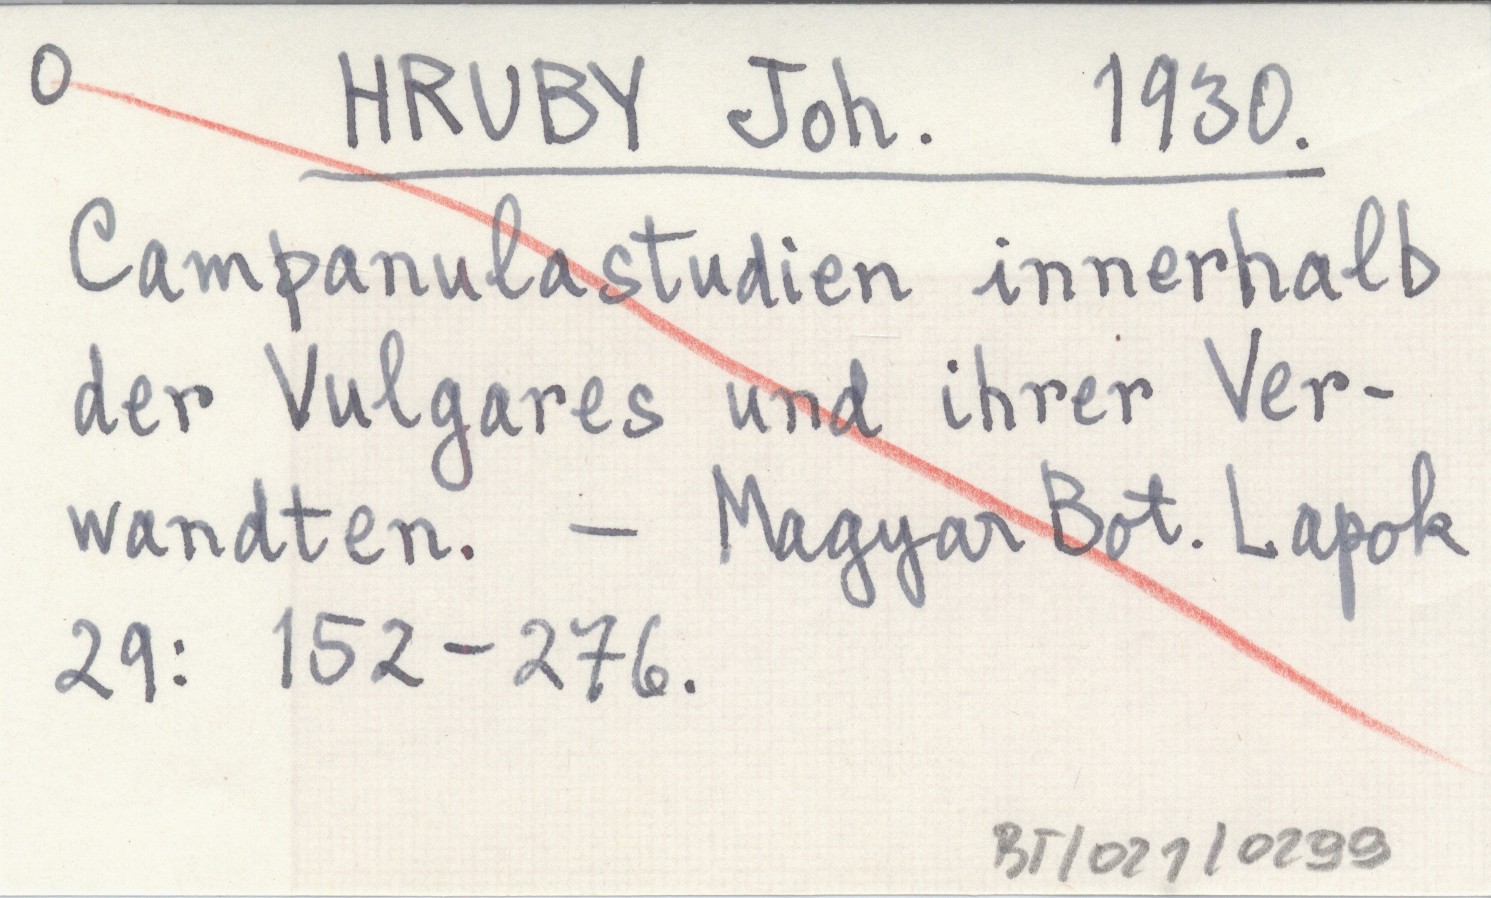 O HRUBY Joh. 1930.
Campanulastudien innerhalb
der Vulgares und ihrer Ver-
wandten. — Magyar Bot. Lapok
29: 152-276.
BT/021/0299